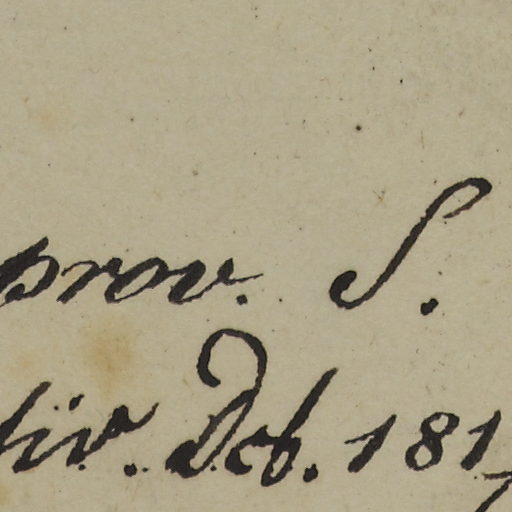 prov. S.
tiv. Dcb. 181